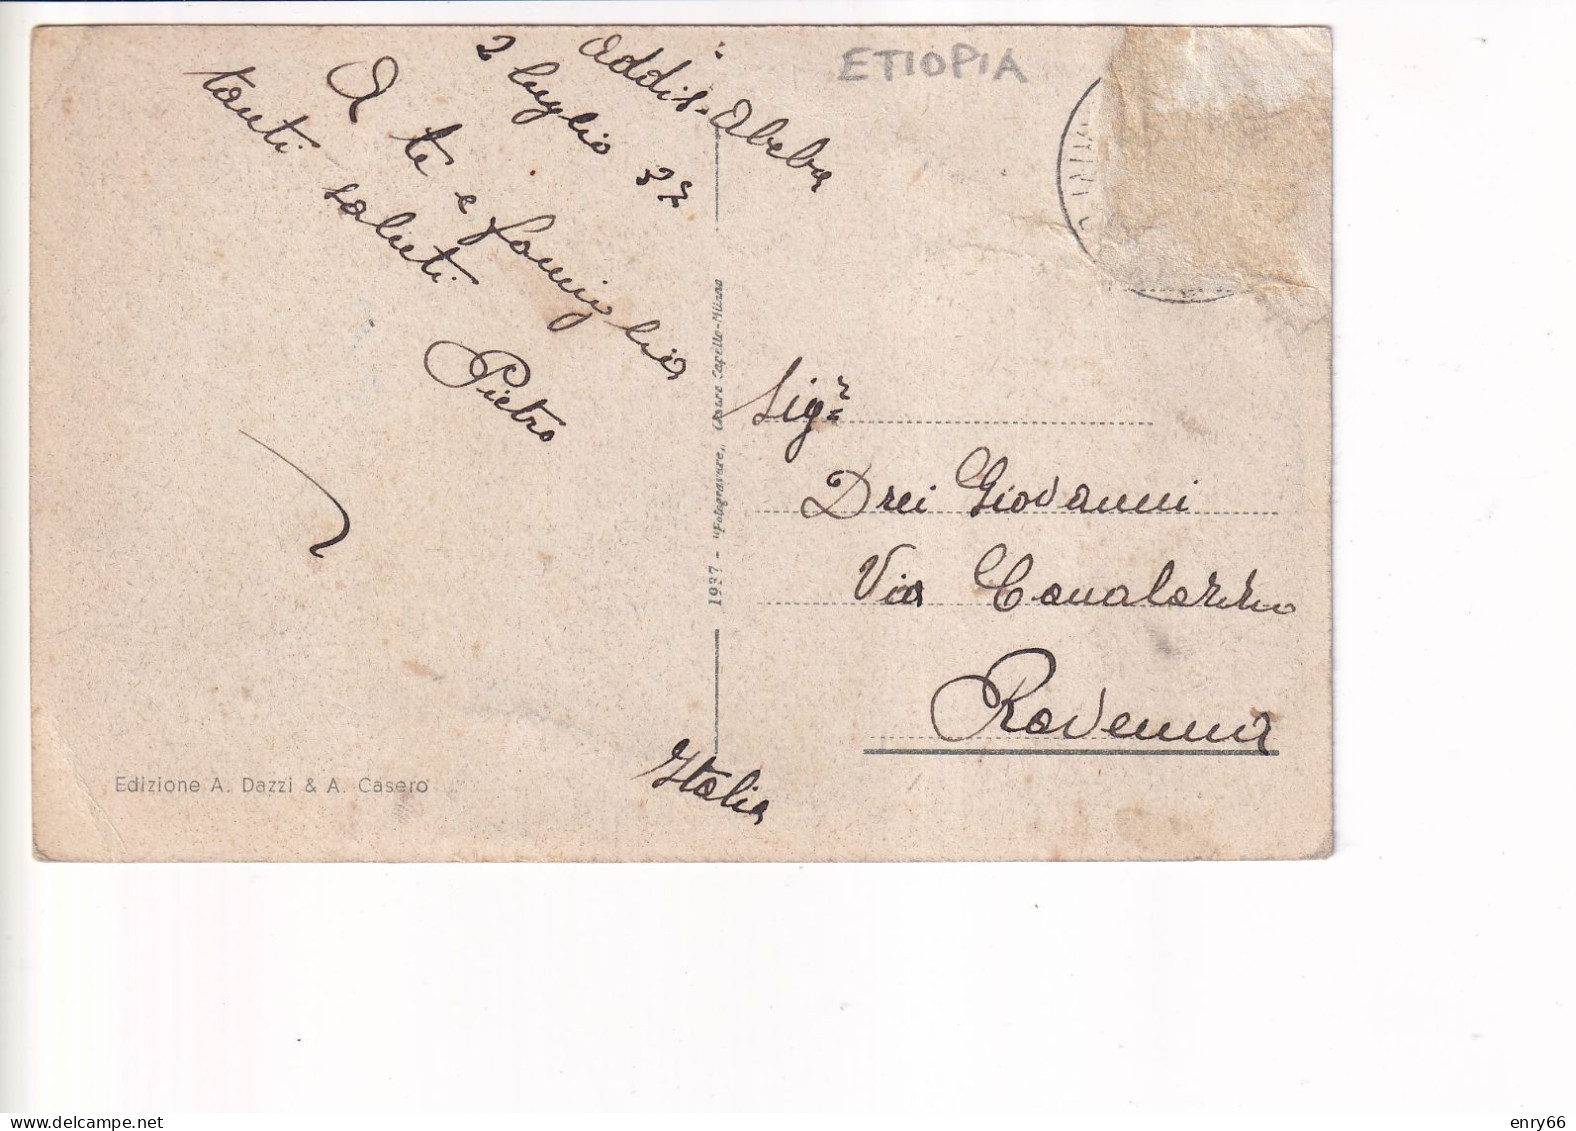 ETIOPIA
Addis-Abeba
2 luglio 37
A te e famiglia
tanti saluti
Pietro
Sigr
Drei Giovanni
Via
Ravenna
Italia
1937 - "Fotogravure„ Cesare Capello-Milano
Edizione A. Dazzi & A. Casero
www.delcampe.net
enry66